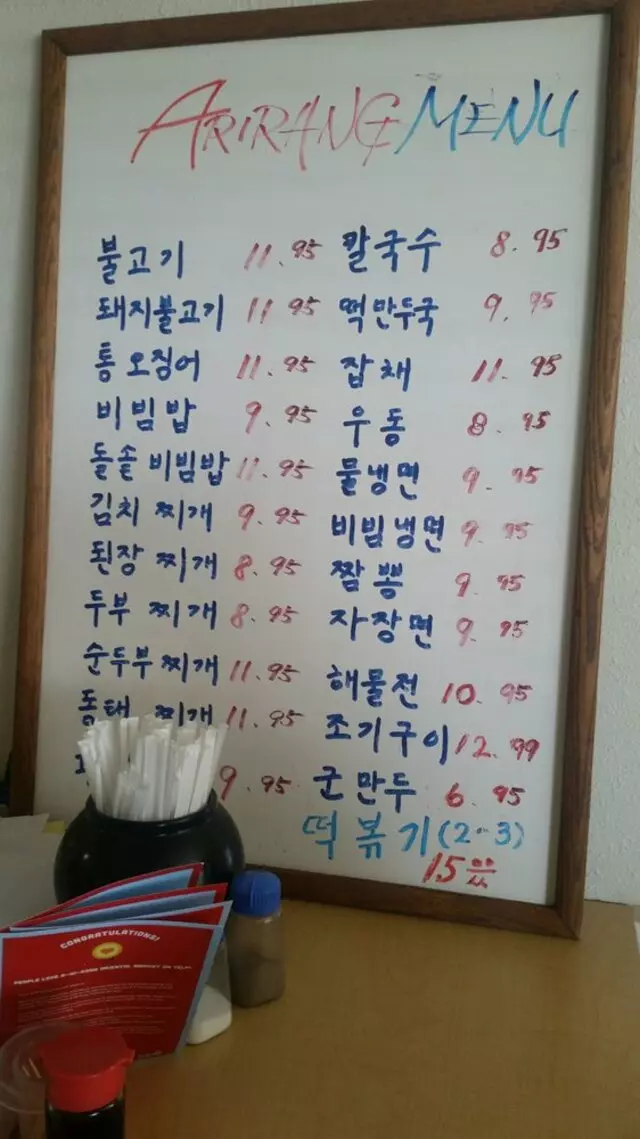 ARIRANG MENU
불고기 11.95
돼지불고기 11.95
통 오징어 11.95
비빔밥 9.95
돌솥 비빔밥 11.95
김치 찌개 9.95
된장 찌개 8.95
두부 찌개 8.95
순두부 찌개 11.95
동태 찌개 11.95
9.95
칼국수 8.95
떡만두국 9.95
잡채 11.95
우동 8.95
물냉면 9.95
비빔냉면 9.95
짬뽕 9.95
자장면 9.95
해물전 10.95
조기구이 12.99
군만두 6.95
떡볶기(2-3)
15.00
CONGRATULATIONS!